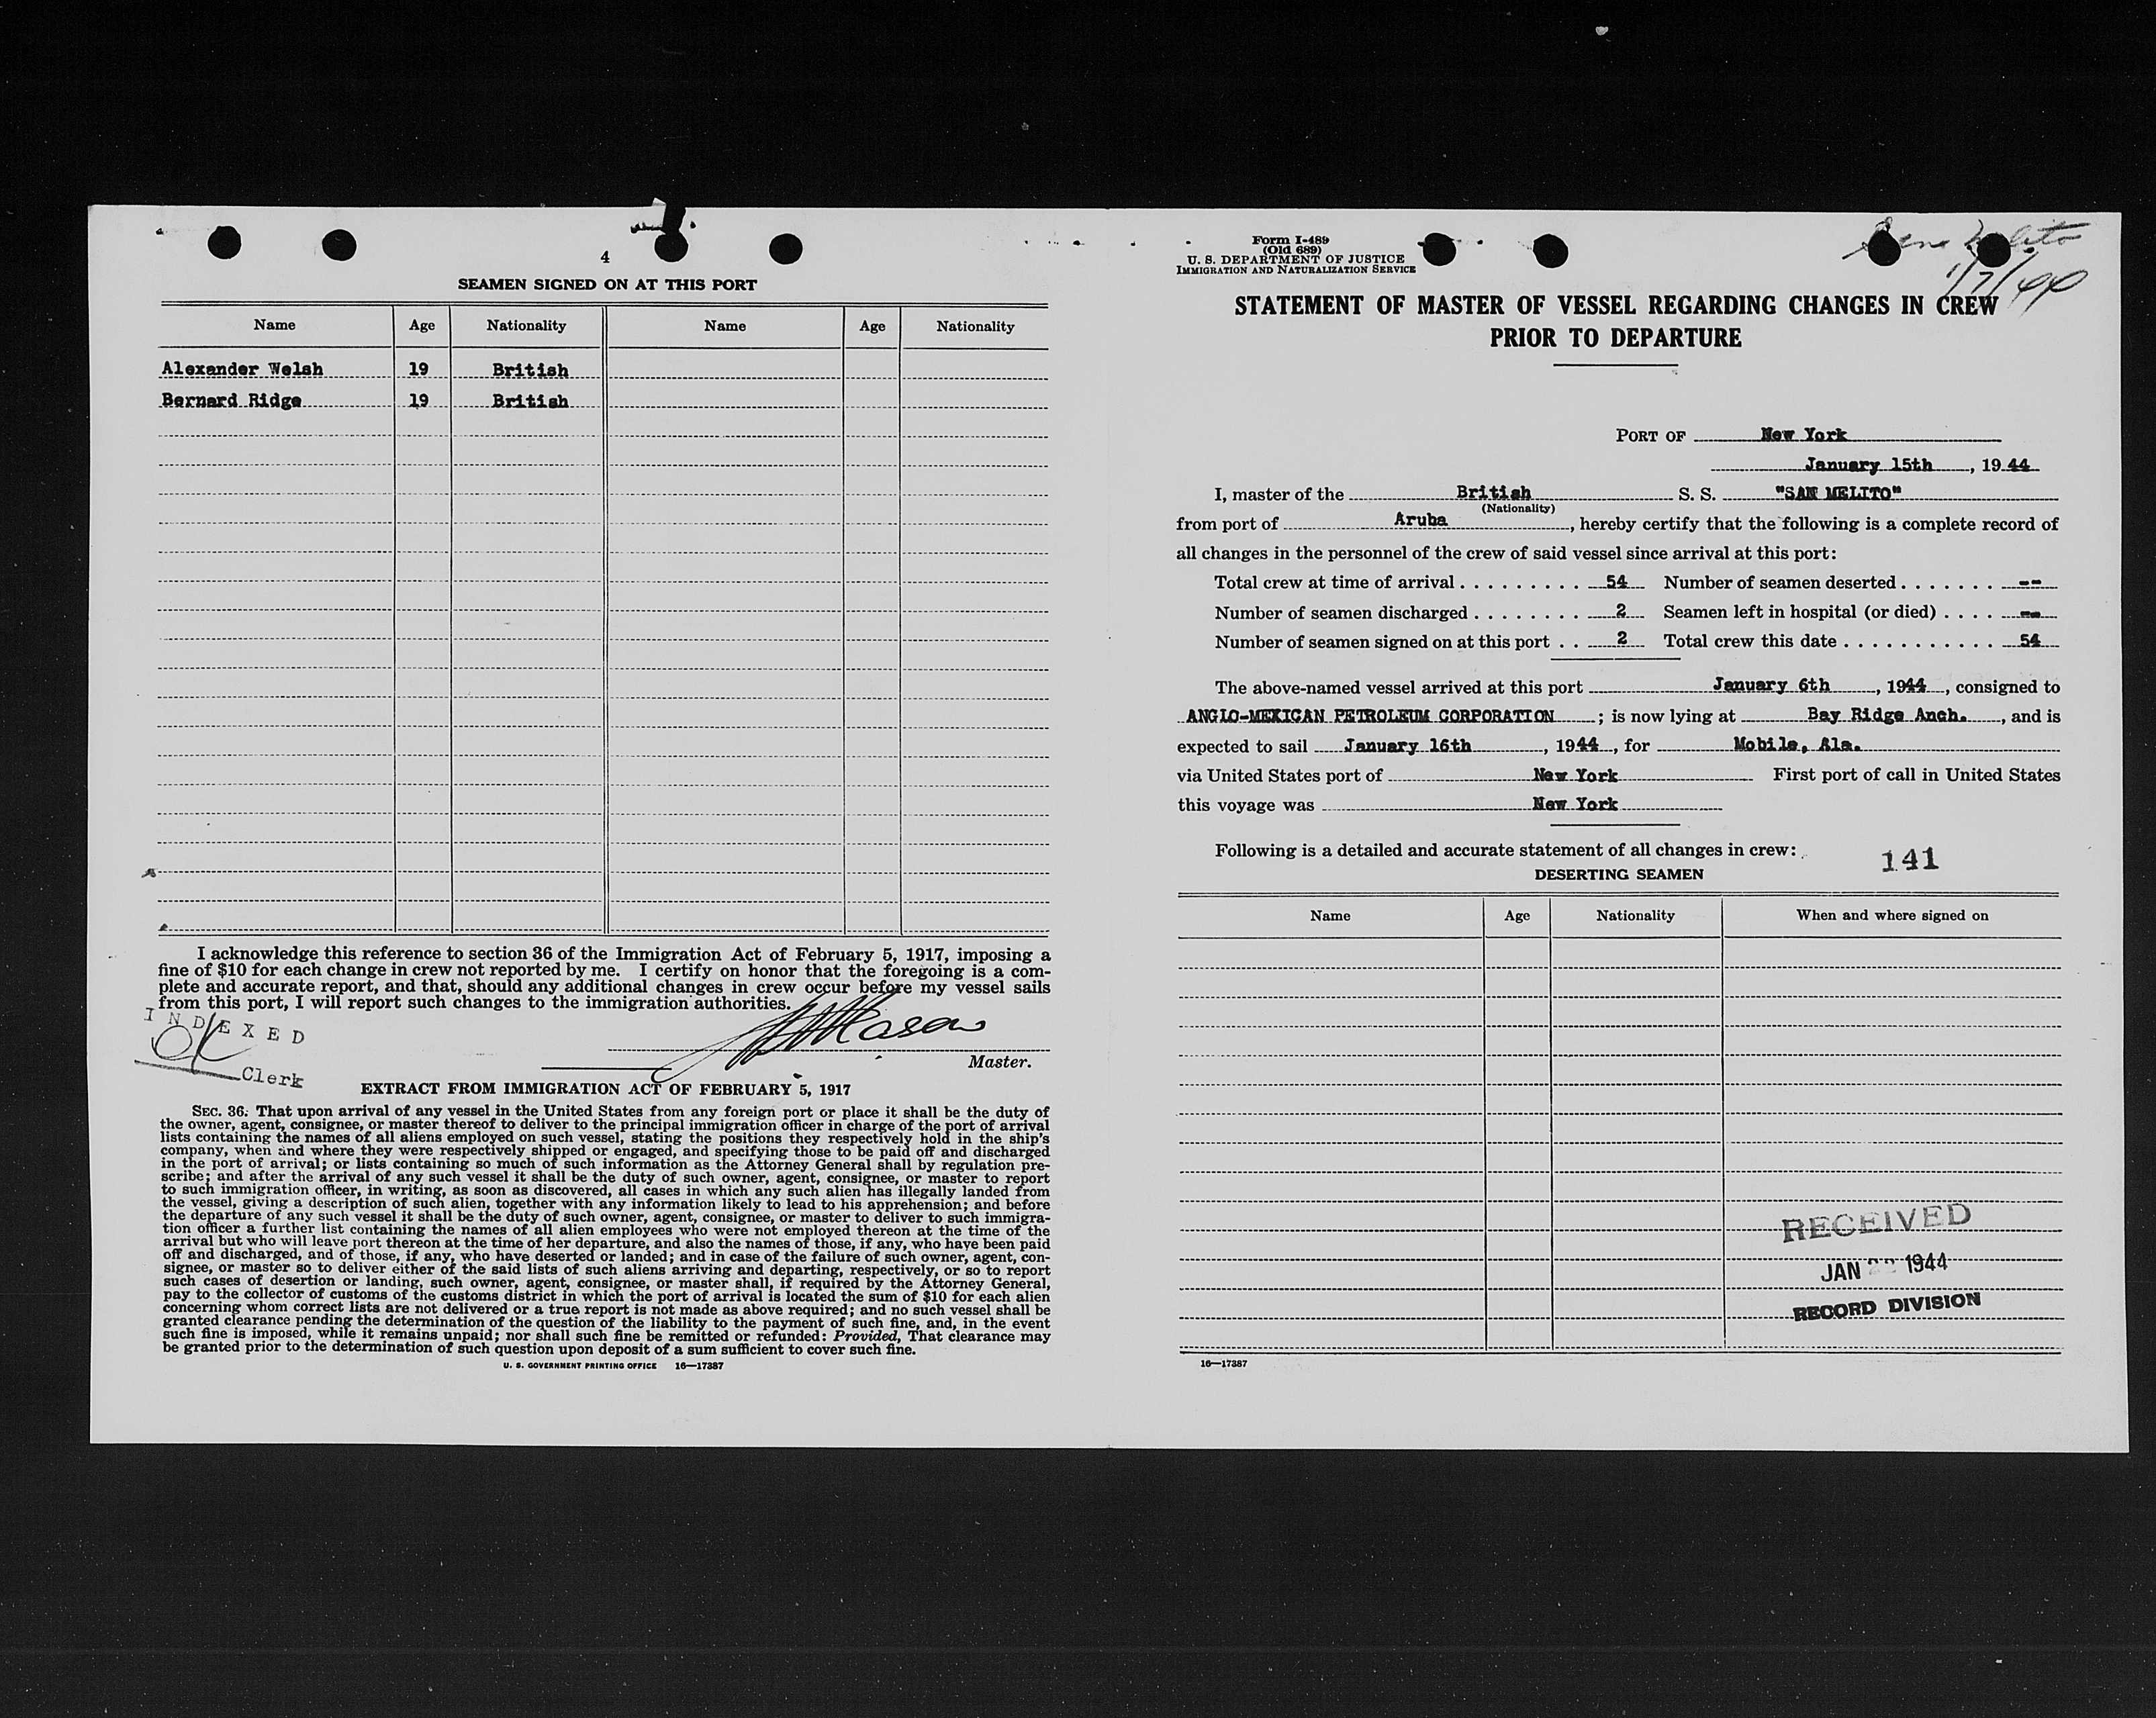 4
SEAMEN SIGNED ON AT THIS PORT
Name Age Nationality Name Age Nationality
Alexander Welsh 19 British
Bernard Ridge 19 British
I acknowledge this reference to section 36 of the Immigration Act of February 5, 1917, imposing a
fine of $10 for each change in crew not reported by me. I certify on honor that the foregoing is a com-
plete and accurate report, and that, should any additional changes in crew occur before my vessel sails
from this port, I will report such changes to the immigration authorities.
INDEXED
OK
Clerk
Master.
EXTRACT FROM IMMIGRATION ACT OF FEBRUARY 5, 1917
SEC. 36. That upon arrival of any vessel in the United States from any foreign port or place it shall be the duty of
the owner, agent, consignee, or master thereof to deliver to the principal immigration officer in charge of the port of arrival
lists containing the names of all aliens employed on such vessel, stating the positions they respectively hold in the ship's
company, when and where they were respectively shipped or engaged, and specifying those to be paid off and discharged
in the port of arrival; or lists containing so much of such information as the Attorney General shall by regulation pre-
scribe; and after the arrival of any such vessel it shall be the duty of such owner, agent, consignee, or master to report
to such immigration officer, in writing, as soon as discovered, all cases in which any such alien has illegally landed from
the vessel, giving a description of such alien, together with any information likely to lead to his apprehension; and before
the departure of any such vessel it shall be the duty of such owner, agent, consignee, or master to deliver to such immigra-
tion officer a further list containing the names of all alien employees who were not employed thereon at the time of the
arrival but who will leave port thereon at the time of her departure, and also the names of those, if any, who have been paid
off and discharged, and of those, if any, who have deserted or landed; and in case of the failure of such owner, agent, con-
signee, or master so to deliver either of the said lists of such aliens arriving and departing, respectively, or so to report
such cases of desertion or landing, such owner, agent, consignee, or master shall, if required by the Attorney General,
pay to the collector of customs of the customs district in which the port of arrival is located the sum of $10 for each alien
concerning whom correct lists are not delivered or a true report is not made as above required; and no such vessel shall be
granted clearance pending the determination of the question of the liability to the payment of such fine, and, in the event
such fine is imposed, while it remains unpaid; nor shall such fine be remitted or refunded: Provided, That clearance may
be granted prior to the determination of such question upon deposit of a sum sufficient to cover such fine.
U. S. GOVERNMENT PRINTING OFFICE 16—17387
Form I-489
(Old 689)
U. S. DEPARTMENT OF JUSTICE
IMMIGRATION AND NATURALIZATION SERVICE
1/7/44
STATEMENT OF MASTER OF VESSEL REGARDING CHANGES IN CREW
PRIOR TO DEPARTURE
PORT OF New York
January 15th, 1944
I, master of the British S. S. "SAN MELITO"
(Nationality)
from port of Aruba, hereby certify that the following is a complete record of
all changes in the personnel of the crew of said vessel since arrival at this port:
Total crew at time of arrival . . . . . . . . . 54 Number of seamen deserted . . . . . . . --
Number of seamen discharged . . . . . . . . 2 Seamen left in hospital (or died) . . . . --
Number of seamen signed on at this port . . 2 Total crew this date . . . . . . . . . . . 54
The above-named vessel arrived at this port January 6th, 1944, consigned to
ANGLO-MEXICAN PETROLEUM CORPORATION; is now lying at Bay Ridge Anch., and is
expected to sail January 16th, 1944, for Mobile, Ala.
via United States port of New York First port of call in United States
this voyage was New York
Following is a detailed and accurate statement of all changes in crew:
141
DESERTING SEAMEN
Name Age Nationality When and where signed on
RECEIVED
JAN 1944
RECORD DIVISION
16—17387